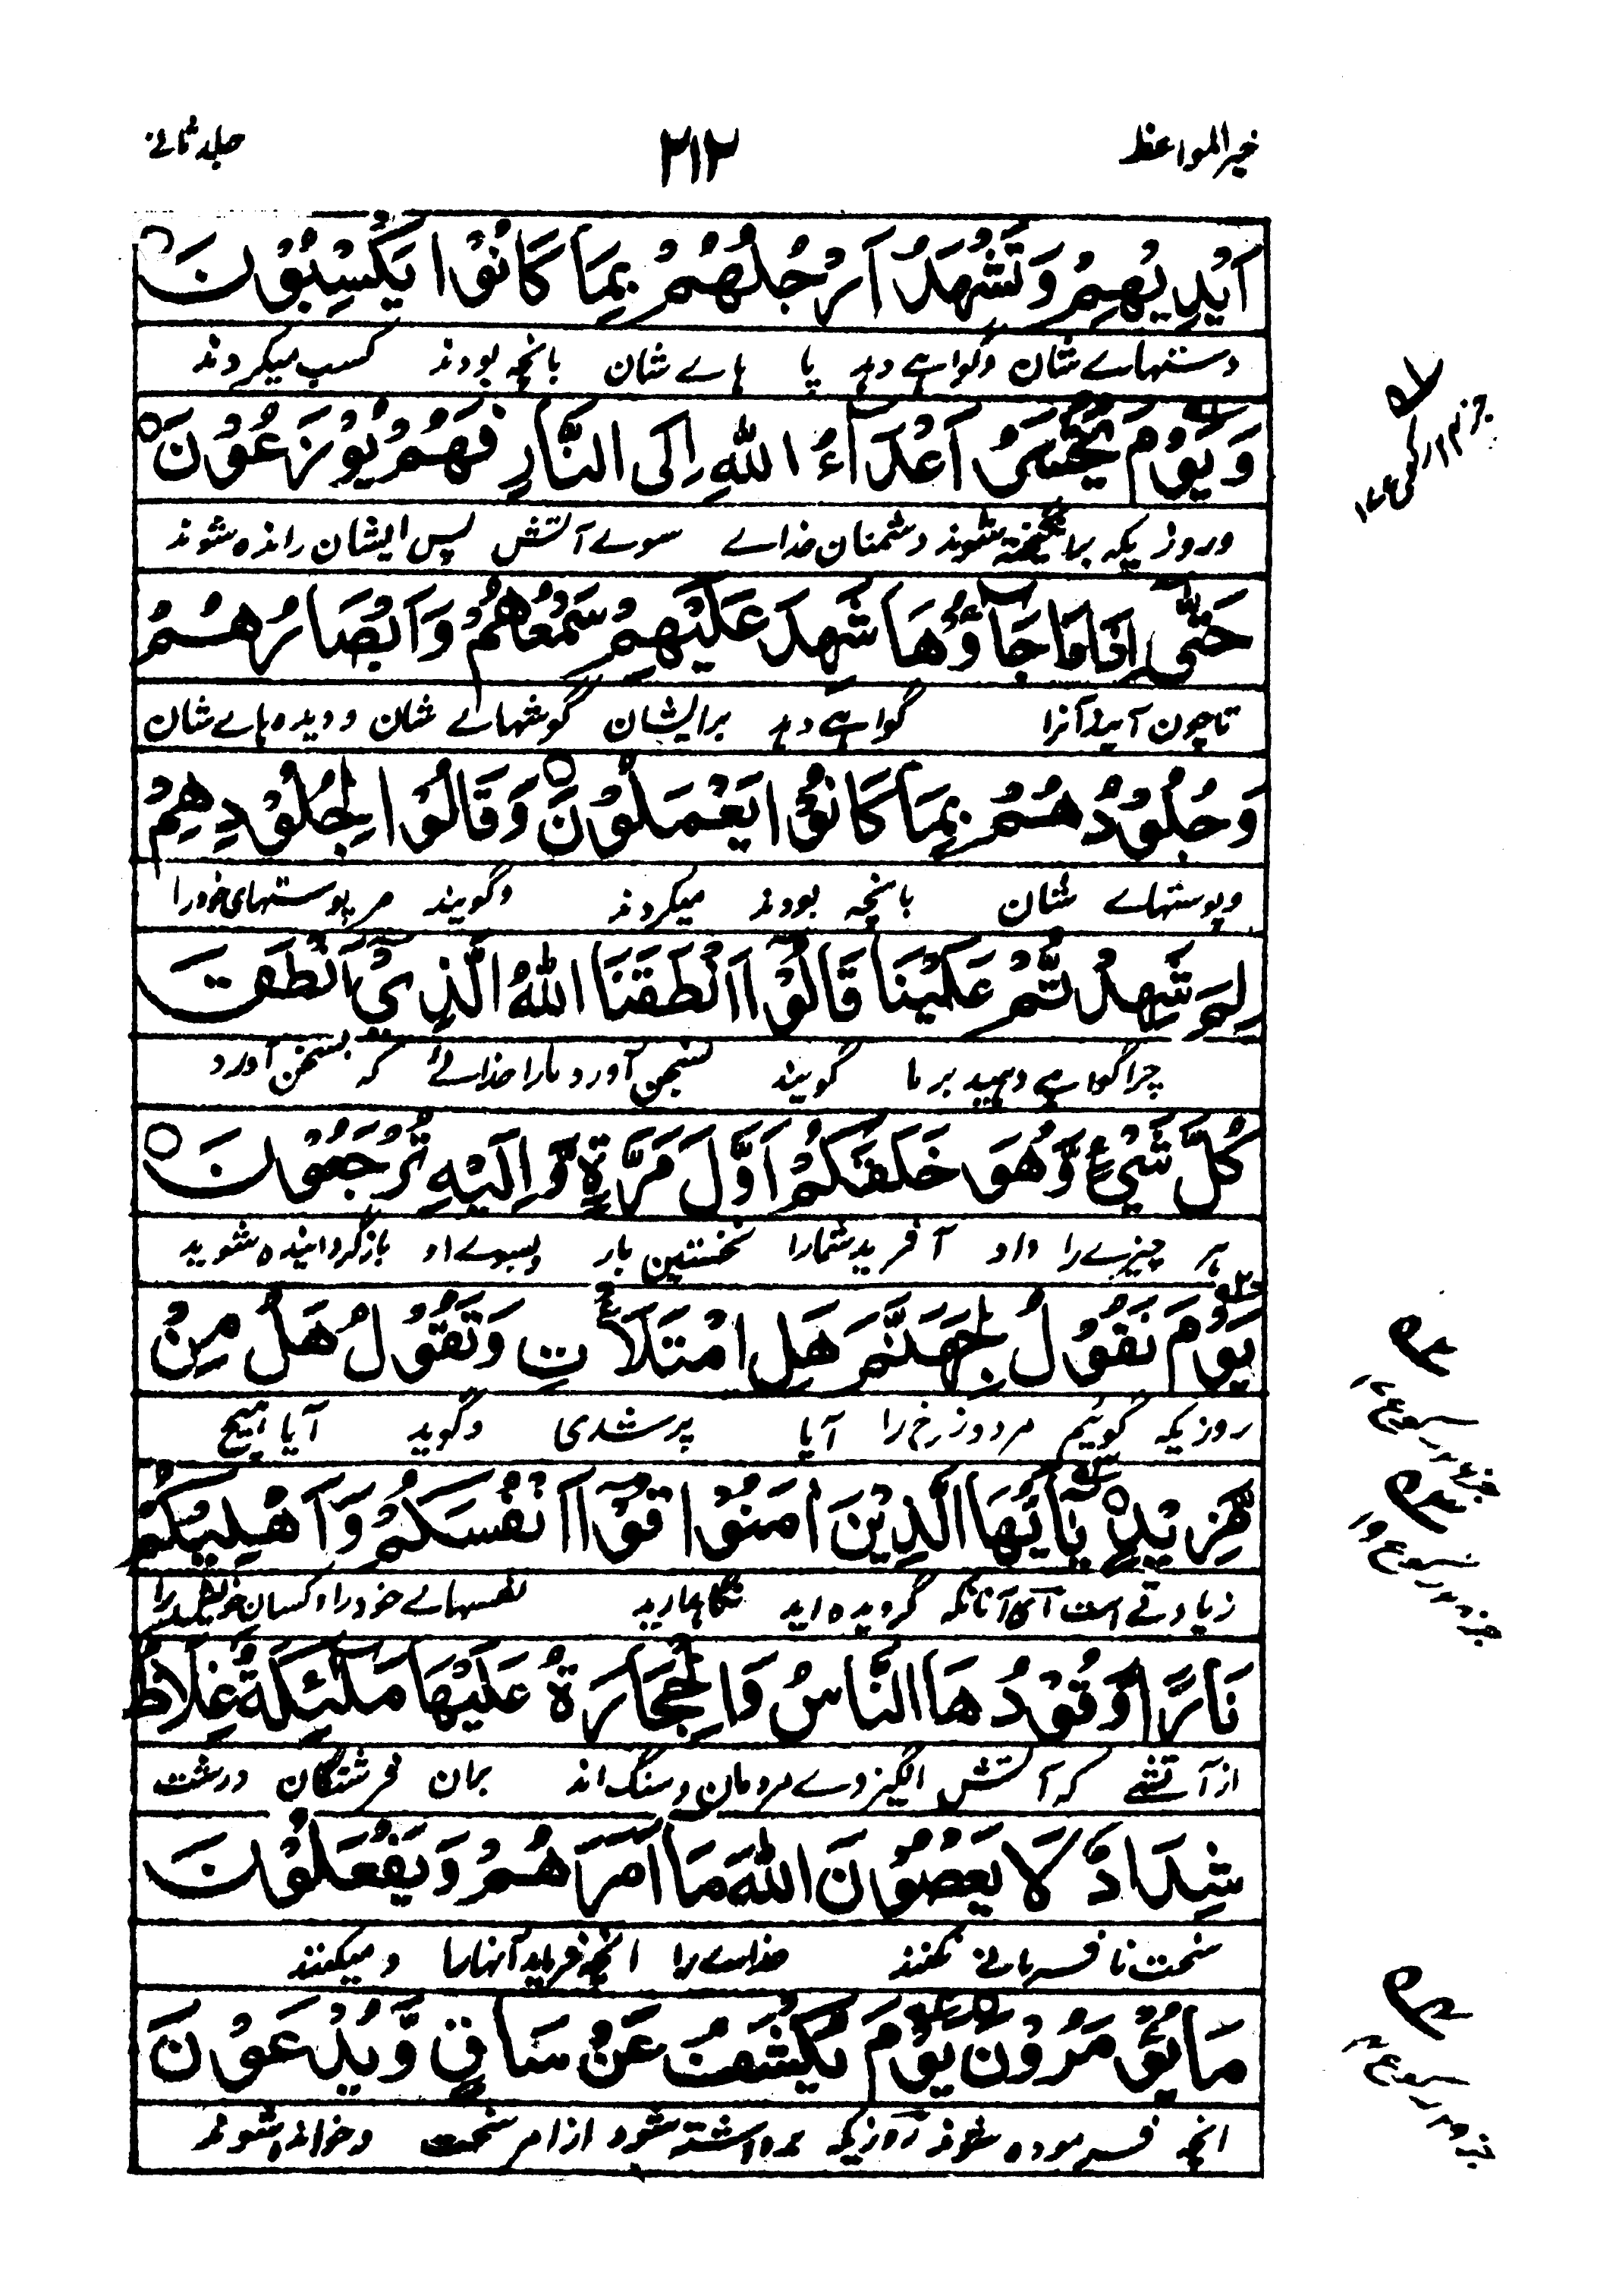 خیر المواعظ ۲۱۲ جلد ثانے
اَیْدِیْهِمْ وَتَشْهَدُ اَرْجُلُهُمْ بِمَا كَانُوْا یَكْسِبُوْنَ
دستہاے شان وگواہے دہد پا ہاے شان بانچہ بودند کسب میکردند
وَیَوْمَ یُحْشَرُ اَعْدَآءُ اللّٰهِ اِلَی النَّارِ فَهُمْ یُوْزَعُوْنَ
وروزیکہ برانگیختہ شوند دشمنان خداے سوے آتش پس ایشان راندہ شوند
حَتّٰۤی اِذَا مَا جَآؤُهَا شَهِدَ عَلَیْهِمْ سَمْعُهُمْ وَاَبْصَارُهُمْ
تا چون آیند آنرا گواہے دہد برایشان گوشہاے شان و دیدہ ہاے شان
وَجُلُوْدُهُمْ بِمَا كَانُوْا یَعْمَلُوْنَ وَقَالُوْا لِجُلُوْدِهِمْ
وپوستہاے شان بانچہ بودند میکردند وگویند مر پوستہای خودرا
لِمَ شَهِدْتُّمْ عَلَیْنَا قَالُوْۤا اَنْطَقَنَا اللّٰهُ الَّذِیْۤ اَنْطَقَ
چرا گواہے دہید بر ما گویند بسخن آورد مارا خداے کہ بسخن آورد
كُلَّ شَیْءٍ وَّهُوَ خَلَقَكُمْ اَوَّلَ مَرَّةٍ وَّاِلَیْهِ تُرْجَعُوْنَ
ہر چیزے را واو آفرید شمارا نخستین بار وبسوے او بازگردانیدہ شوید
یَوْمَ نَقُوْلُ لِجَهَنَّمَ هَلِ امْتَلَأْتِ وَتَقُوْلُ هَلْ مِنْ
روزیکہ گوئیم مر دوزخ را آیا پر شدی وگوید آیا ہیچ
مَّزِیْدٍ یٰۤاَیُّهَا الَّذِیْنَ اٰمَنُوْا قُوْۤا اَنْفُسَكُمْ وَاَهْلِیْكُمْ
زیادتے است آی آنانکہ گرویدہ اید نگاہدارید نفسہاے خودرا وکسان خویش را
نَارًا وَّقُوْدُهَا النَّاسُ وَالْحِجَارَةُ عَلَیْهَا مَلٰٓئِكَةٌ غِلَاظٌ
از آتشے کہ آتش انگیز وے مردمان وسنگ اند بران فرشتگان درشت
شِدَادٌ لَّا یَعْصُوْنَ اللّٰهَ مَاۤ اَمَرَهُمْ وَیَفْعَلُوْنَ
سخت نافرمانے نکنند خداے را انچہ فرماید آنہارا و میکنند
مَا یُؤْمَرُوْنَ یَوْمَ یُكْشَفُ عَنْ سَاقٍ وَّیُدْعَوْنَ
انچہ فرمودہ شوند روزیکہ برداشتہ شود از امر سخت وخواندہ شوند